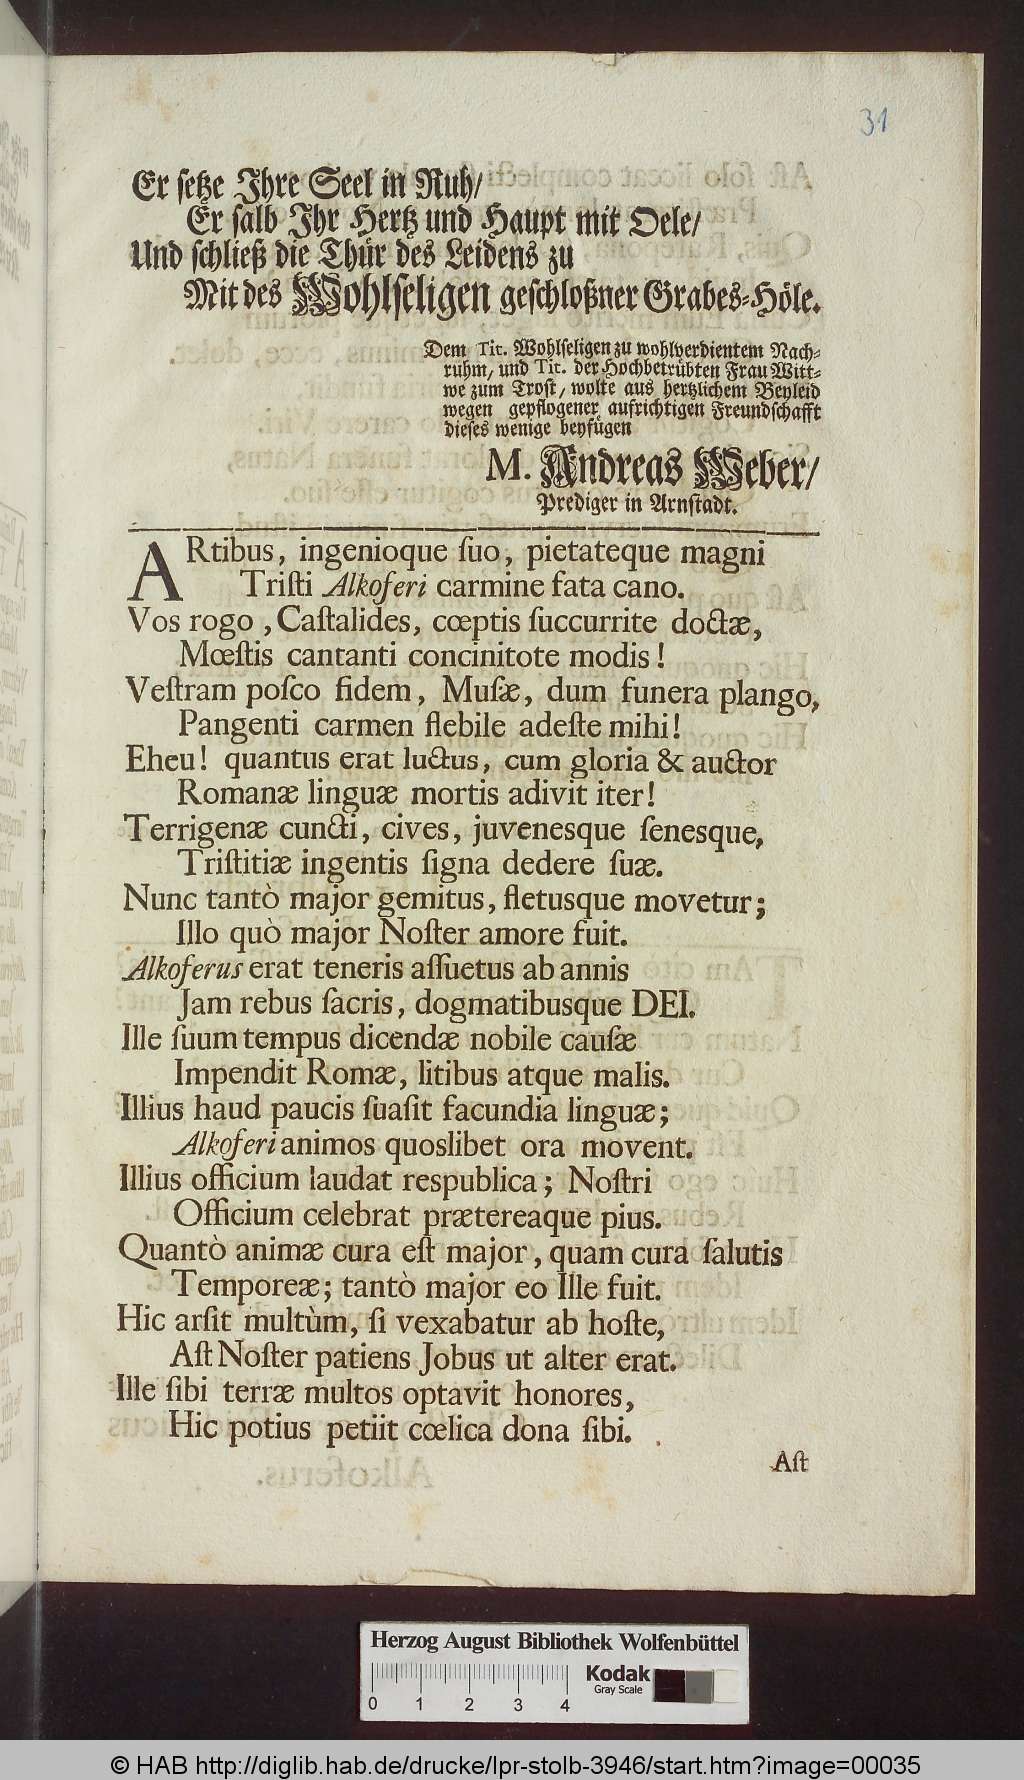 31
Er ſetze Ihre Seel in Ruh/
Er ſalb Ihr Hertz und Haupt mit Oele/
Und ſchließ die Thür des Leidens zu
Mit des Wohlſeligen geſchloßner Grabes-Höle.
Dem Tit. Wohlſeligen zu wohlverdientem Nach-
ruhm/ und Tit. der Hochbetrübten Frau Witt-
we zum Troſt/ wolte aus hertzlichem Beyleid
wegen gepflogener aufrichtigen Freundſchafft
dieſes wenige beyfügen
M. Andreas Weber/
Prediger in Arnſtadt.
ARtibus, ingenioque ſuo, pietateque magni
Triſti Alkoferi carmine fata cano.
Vos rogo, Caſtalides, cœptis ſuccurrite doctæ,
Mœſtis cantanti concinitote modis!
Veſtram poſco fidem, Muſæ, dum funera plango,
Pangenti carmen flebile adeſte mihi!
Eheu! quantus erat luctus, cum gloria & auctor
Romanæ linguæ mortis adivit iter!
Terrigenæ cuncti, cives, juvenesque ſenesque,
Triſtitiæ ingentis ſigna dedere ſuæ.
Nunc tantò major gemitus, fletusque movetur;
Illo quò major Noſter amore fuit.
Alkoferus erat teneris aſſuetus ab annis
Jam rebus ſacris, dogmatibusque DEI.
Ille ſuum tempus dicendæ nobile cauſæ
Impendit Romæ, litibus atque malis.
Illius haud paucis ſuaſit facundia linguæ;
Alkoferi animos quoslibet ora movent.
Illius officium laudat respublica; Noſtri
Officium celebrat prætereaque pius.
Quantò animæ cura eſt major, quam cura ſalutis
Temporeæ; tantò major eo Ille fuit.
Hic arſit multùm, ſi vexabatur ab hoſte,
Aſt Noſter patiens Jobus ut alter erat.
Ille ſibi terræ multos optavit honores,
Hic potius petiit cœlica dona ſibi.
Aſt
Herzog August Bibliothek Wolfenbüttel
0 1 2 3 4
Kodak
Gray Scale
© HAB http://diglib.hab.de/drucke/lpr-stolb-3946/start.htm?image=00035